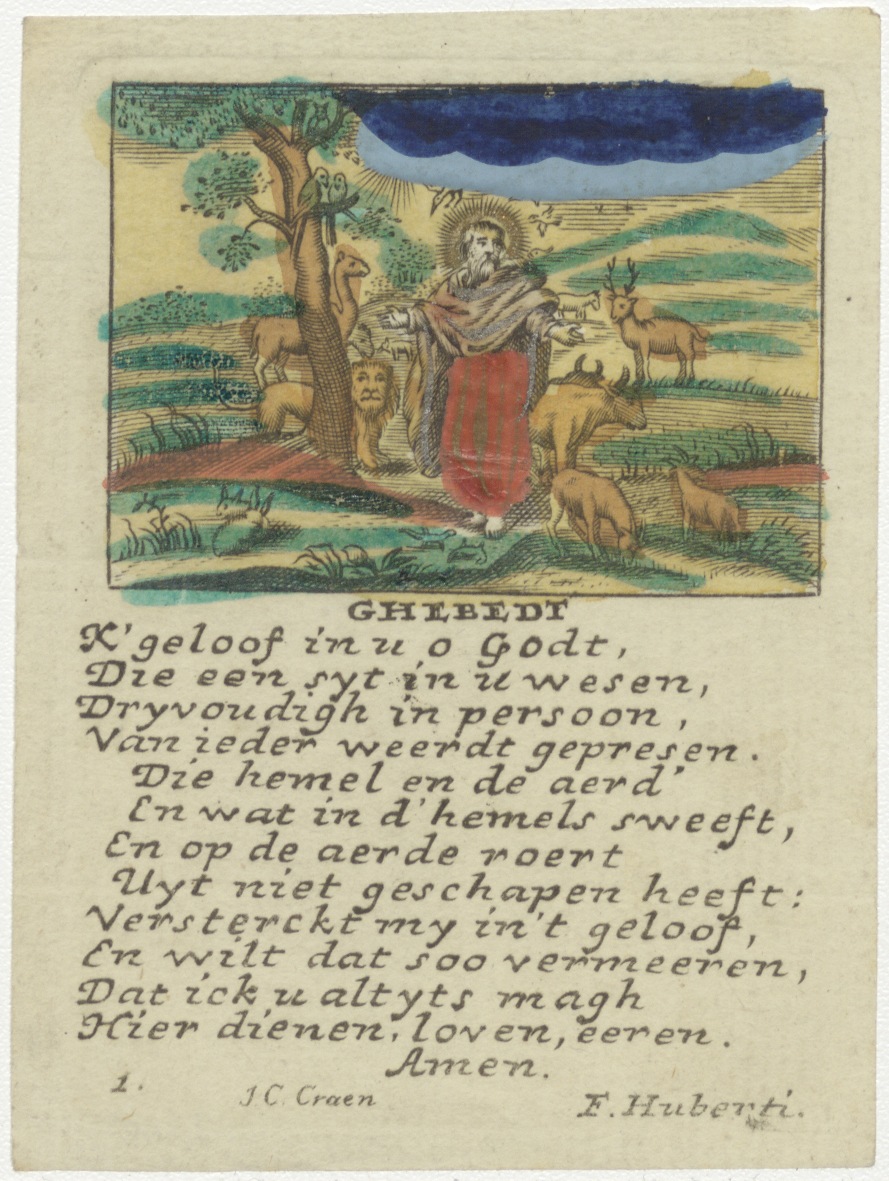 GHEBEDT
K'geloof in u o Godt,
Die een syt in u wesen,
Dryvoudigh in persoon,
Van ieder weerdt gepresen.
Die hemel en de aerd'
En wat in d'hemels sweeft,
En op de aerde roert
Uyt niet geschapen heeft:
Versterckt my in't geloof,
En wilt dat soo vermeeren,
Dat ick u altyts magh
Hier dienen, loven, eeren.
Amen.
1. J C. Craen F. Huberti.